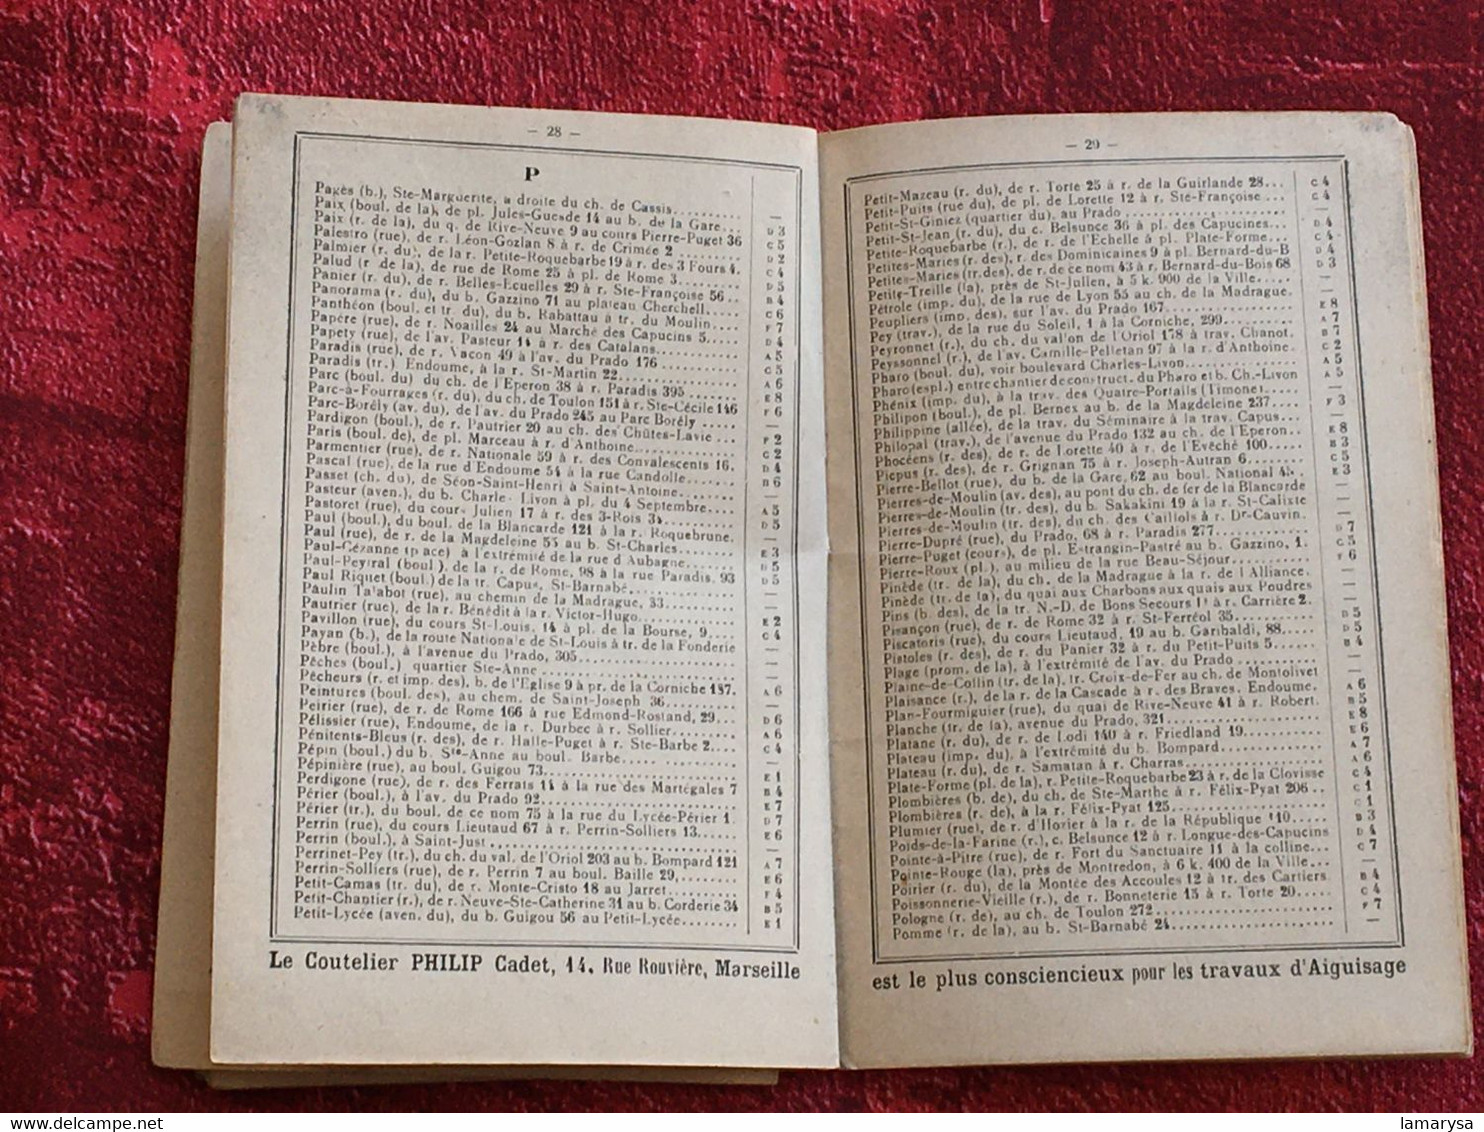 — 28 —
P
Pagès (b.), Ste-Marguerite, a droite du ch. de Cassis.......... —
Paix (boul. de la), de pl. Jules-Guesde 14 au b. de la Gare... D 3
Paix (r. de la), du q. de Rive-Neuve 9 au cours Pierre-Puget 36 C 5
Palestro (rue), de r. Léon-Gozlan 8 à r. de Crimée 2 .......... D 2
Palmier (r. du), de la r. Petite-Roquebarbe 19 à r. des 3 Fours 4. C 4
Palud (r. de la), de rue de Rome 25 à pl. de Rome 3......... D 5
Panier (r. du), de r. Belles-Ecuelles 29 à r. Ste-Françoise 56.. B 4
Panorama (r. du), du b. Gazzino 71 au plateau Cherchell..... C 6
Panthéon (boul. et tr. du), du b. Rabattau à tr. du Moulin.... F 7
Papère (rue), de r. Noailles 24 au Marché des Capucins 5..... D 4
Papety (rue), de l'av. Pasteur 14 à r. des Catalans............ A 5
Paradis (rue), de r. Vacon 49 à l'av. du Prado 176 ............ C 5
Paradis (tr.) Endoume, à la r. St-Martin 22................... A 6
Parc (boul. du) du ch. de l'Eperon 38 à r. Paradis 395......... E 8
Parc-à-Fourrages (r. du), du ch. de Toulon 151 à r. Ste-Cécile 146 F 6
Parc-Borély (av. du), de l'av. du Prado 245 au Parc Borély ...
Pardigon (boul.), de r. Pautrier 20 au ch. des Chûtes-Lavie ... F 2
Paris (boul. de), de pl. Marceau à r. d'Anthoine.............. C 2
Parmentier (rue), r. Nationale 59 à r. des Convalescents 16. D 4
Pascal (rue), de la rue d'Endoume 54 à la rue Candolle........ B 6
Passet (ch. du), de Séon-Saint-Henri à Saint-Antoine......... —
Pasteur (aven.), du b. Charles-Livon à pl. du 4 Septembre.... A 5
Pastoret (rue), du cours Julien 17 à r. des 3-Rois 34......... D 5
Paul (boul.), du boul. de la Blancarde 121 à la r. Roquebrune. —
Paul (rue), de r. de la Magdeleine 55 au b. St-Charles........ E 3
Paul-Cézanne (place) à l'extrémité de la rue d'Aubagne....... D 5
Paul-Peytral (boul.), de la r. de Rome, 98 à la rue Paradis, 93 D 5
Paul Riquet (boul.) de la tr. Capus, St-Barnabé.............. —
Paulin Talabot (rue), au chemin de la Madrague, 33.......... —
Pautrier (rue), de la r. Bénédit à la r. Victor-Hugo.......... E 2
Pavillon (rue), du cours St-Louis, 14 à pl. de la Bourse, 9.... C 4
Payan (b.), de la route Nationale de St-Louis à tr. de la Fonderie —
Pèbre (boul.), à l'avenue du Prado, 305....................... —
Pêches (boul.) quartier Ste-Anne .............................. —
Pêcheurs (r. et imp. des), b. de l'Eglise 9 à pr. de la Corniche 187. A 6
Peintures (boul. des), au chem. de Saint-Joseph 36........... —
Peirier (rue), de r. de Rome 166 à rue Edmond-Rostand, 29... D 6
Pélissier (rue), Endoume, de la r. Durbec à r. Sollier.......... A 6
Pénitents-Bleus (r. des), de r. Halle-Puget à r. Ste-Barbe 2.... C 4
Pépin (boul.) du b. Ste-Anne au boul. Barbe.................. —
Pépinière (rue), au boul. Guigou 73........................... E 1
Perdigone (rue), de r. des Ferrats 11 à la rue des Martégales 7 B 4
Périer (boul.), à l'av. du Prado 92............................ E 7
Périer (tr.), du boul. de ce nom 75 à la rue du Lycée-Périer 1. D 7
Perrin (rue), du cours Lieutaud 67 à r. Perrin-Solliers 13...... E 6
Perrin (boul.), à Saint-Just..................................... —
Perrinet-Pey (tr.), du ch. du val. de l'Oriol 203 au b. Bompard 121 A 7
Perrin-Solliers (rue), de r. Perrin 7 au boul. Baille 29,........ E 6
Petit-Camas (tr. du), de r. Monte-Cristo 18 au Jarret.......... F 4
Petit-Chantier (r.), de r. Neuve-Ste-Catherine 31 au b. Corderie 34 B 5
Petit-Lycée (aven. du), du b. Guigou 56 au Petit-Lycée....... E 1
Le Coutelier PHILIP Cadet, 14, Rue Rouvière, Marseille
— 29 —
Petit-Mazeau (r. du), de r. Torte 25 à r. de la Guirlande 28... C 4
Petit-Puits (rue du), de pl. de Lorette 12 à r. Ste-Françoise ... C 4
Petit-St-Giniez (quartier du), au Prado ........................ —
Petit-St-Jean (r. du), du c. Belsunce 36 à pl. des Capucines... D 4
Petite-Roquebarbe (r.), de r. de l'Echelle à pl. Plate-Forme... C 4
Petites-Maries (r. des), r. des Dominicaines 9 à pl. Bernard-du-B D 4
Petites-Maries (tr. des), de r. de ce nom 43 à r. Bernard-du-Bois 68 D 3
Petite-Treille (la), près de St-Julien, à 5 k. 900 de la Ville..... —
Pétrole (imp. du), de la rue de Lyon 55 au ch. de la Madrague. —
Peupliers (imp. des), sur l'av. du Prado 167.................. E 8
Pey (trav.), de la rue du Soleil, 1 à la Corniche, 299.......... A 7
Peyronnet (r.), du ch. du vallon de l'Oriol 178 à trav. Chanot. B 7
Peyssonnel (r.), de l'av. Camille-Pelletan 97 à la r. d'Anthoine. C 2
Pharo (boul. du), voir boulevard Charles-Livon............... A 5
Pharo (espl.) entre chantier de construct. du Pharo et b. Ch.-Livon A 5
Phénix (imp. du), à la trav. des Quatre-Portails (Timone)..... —
Philipon (boul.), de pl. Bernex au b. de la Magdeleine 237..... F 3
Philippine (allée), de la trav. du Séminaire à la trav. Capus... —
Philopal (trav.), de l'avenue du Prado 132 au ch. de l'Eperon.. E 8
Phocéens (r. des), de r. de Lorette 40 à r. de l'Evêché 100..... B 3
Picpus (r. des), de r. Grignan 75 à r. Joseph-Autran 6........ C 5
Pierre-Bellot (rue), du b. de la Gare, 62 au boul. National 45.. E 3
Pierres-de-Moulin (av. des), au pont du ch. de fer de la Blancarde —
Pierres-de-Moulin (tr. des), du b. Sakakini 19 à la r. St-Calixte —
Pierres-de-Moulin (trav. des), du ch. des Caillols à r. Dr-Cauvin. —
Pierre-Dupré (rue), du Prado, 68 à r. Paradis 277............. D 7
Pierre-Puget (cours), de pl. Estrangin-Pastré au b. Gazzino, 1. C 5
Pierre-Roux (pl.), au milieu de la rue Beau-Séjour............ F 6
Pinède (tr. de la), du ch. de la Madrague à la r. de l'Alliance. —
Pinède (tr. de la), du quai aux Charbons aux quais aux Poudres —
Pins (b. des), de la tr. N.-D. de Bons Secours 11 à r. Carrière 2. —
Pisançon (rue), de r. de Rome 32 à r. St-Ferréol 35........... D 5
Piscatoris (rue), du cours Lieutaud, 19 au b. Garibaldi, 88..... D 5
Pistoles (r. des), de r. du Panier 32 à r. du Petit-Puits 5...... B 4
Plage (prom. de la), à l'extrémité de l'av. du Prado .......... —
Plaine-de-Collin (tr. de la), tr. Croix-de-Fer au ch. de Montolivet —
Plaisance (r.), de la r. de la Cascade à r. des Braves, Endoume. A 6
Plan-Fourmiguier (rue), du quai de Rive-Neuve 41 à r. Robert. B 5
Planche (tr. de la), avenue du Prado, 321.................... E 8
Platane (r. du), de r. de Lodi 140 à r. Friedland 19........... E 6
Plateau (imp. du), à l'extrémité du b. Bompard............... A 7
Plateau (r. du), de r. Samatan à r. Charras................... A 6
Plate-Forme (pl. de la), r. Petite-Roquebarbe 23 à r. de la Clovisse C 4
Plombières (b. de), du ch. de Ste-Marthe à r. Félix-Pyat 206.. C 1
Plombières (r. de), à la r. Félix-Pyat 125..................... C 1
Plumier (rue), de r. d'Hozier à la r. de la République 110...... B 3
Poids-de-la-Farine (r.), c. Belsunce 12 à r. Longue-des-Capucins D 4
Pointe-à-Pitre (rue), de r. Fort du Sanctuaire 11 à la colline... C 7
Pointe-Rouge (la), près de Montredon, à 6 k. 400 de la Ville... —
Poirier (r. du), de la Montée des Accoules 12 à tr. des Cartiers B 4
Poissonnerie-Vieille (r.), de r. Bonneterie 15 à r. Torte 20..... C 4
Pologne (r. de), au ch. de Toulon 272......................... F 7
Pomme (r. de la), au b. St-Barnabé 24......................... —
est le plus consciencieux pour les travaux d'Aiguisage
lamarysa